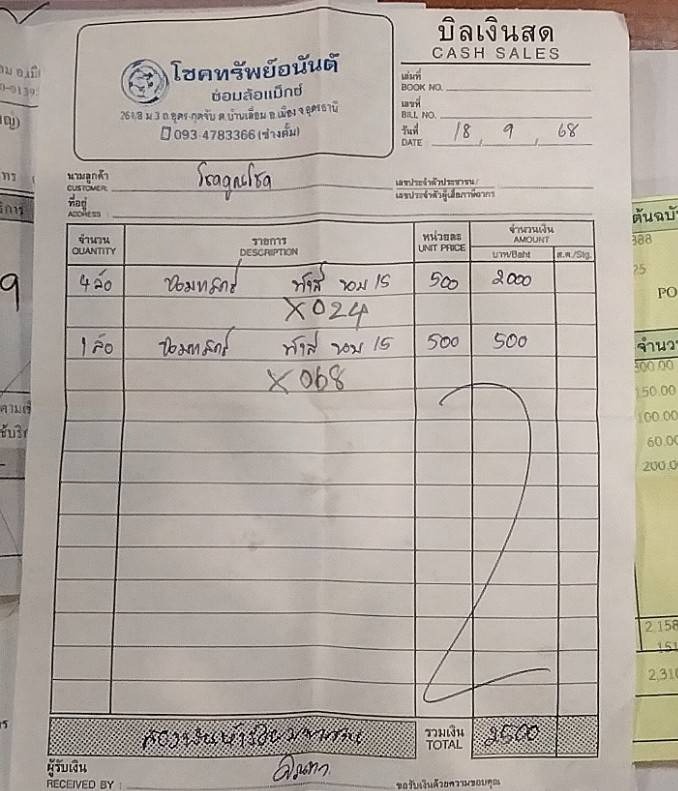 บิลเงินสด
CASH SALES
โชคทรัพย์อนันต์
ซ่อมล้อแม็กซ์
261/8 ม.3 ถ.อุดร-กุดจับ ต.บ้านเลื่อม อ.เมือง จ.อุดรธานี
093-4783366 (ช่างคั้ม)
เล่มที่
BOOK NO.
เลขที่
BILL NO.
วันที่ 18 9 68
DATE
นามลูกค้า
CUSTOMER
เลขประจำตัวประชาชน/
เลขประจำตัวผู้เสียภาษีอากร
ที่อยู่
ADDRESS
จำนวน รายการ หน่วยละ จำนวนเงิน
QUANTITY DESCRIPTION UNIT PRICE AMOUNT
บาท/Baht ส.ต./Stg.
4 ล้อ ขอบ 15 500 2000
X024
1 ล้อ ขอบ 15 500 500
X068
รวมเงิน 2500
TOTAL
ผู้รับเงิน
RECEIVED BY
ขอรับเงินด้วยความขอบคุณ
ต้นฉบับ
388
25
PO
จำนว
500.00
150.00
100.00
60.00
200.0
2,158
151
2,310